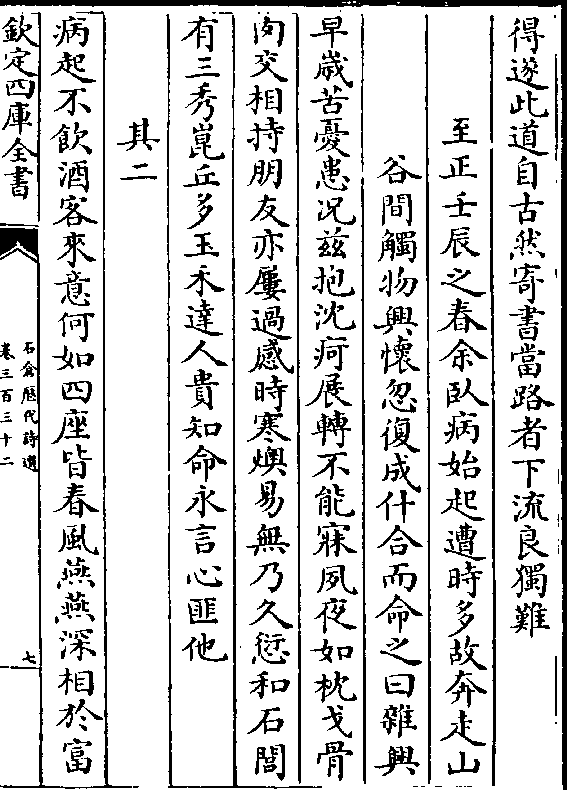 得遂此道自古然寄書當路者下流良獨難
至正壬辰之春余臥病始起遭時多故奔走山
谷間觸物興懷忽復成什合而命之曰雜興
早歲苦憂患况兹抱沈痾展轉不能寐夙夜如枕戈骨
肉交相持朋友亦屢過感時寒燠易無乃久愆和石閭
有三秀崑丘多玉禾達人貴知命永言心匪他
其二
病起不飲酒客來意何如四座皆春風燕燕深相於富
欽定四庫全書
石倉歷代詩選
卷三百三十二
七